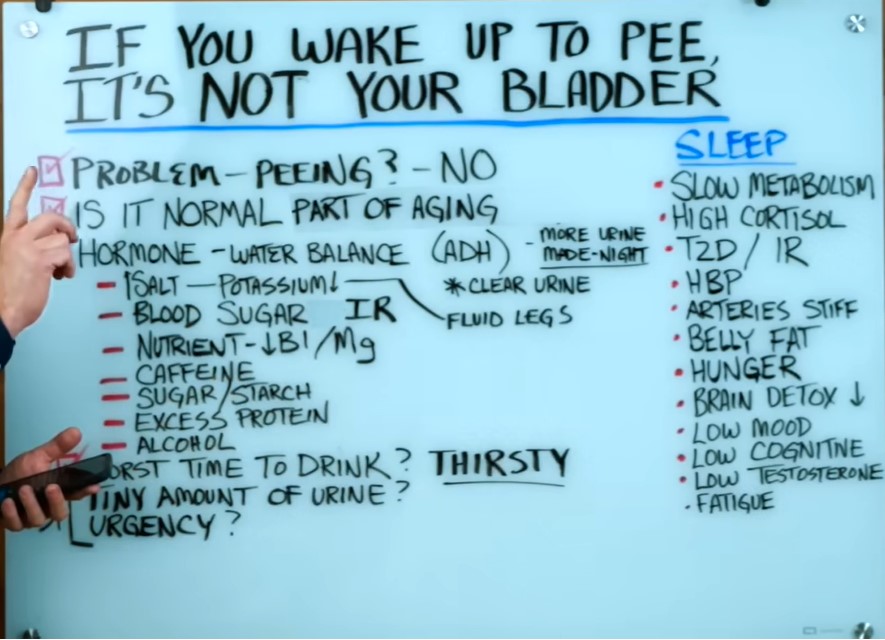 IF YOU WAKE UP TO PEE,
IT'S NOT YOUR BLADDER
PROBLEM - PEEING? - NO
IS IT NORMAL PART OF AGING
HORMONE - WATER BALANCE (ADH) - MORE URINE
MADE-NIGHT
- ↑SALT - POTASSIUM↓
* CLEAR URINE
- BLOOD SUGAR IR
FLUID LEGS
- NUTRIENT - ↓B1/Mg
- CAFFEINE
- SUGAR/STARCH
- EXCESS PROTEIN
- ALCOHOL
TIME TO DRINK? THIRSTY
TINY AMOUNT OF URINE?
URGENCY?
SLEEP
• SLOW METABOLISM
• HIGH CORTISOL
• T2D / IR
• HBP
• ARTERIES STIFF
• BELLY FAT
• HUNGER
• BRAIN DETOX ↓
• LOW MOOD
• LOW COGNITINE
• LOW TESTOSTERONE
• FATIGUE